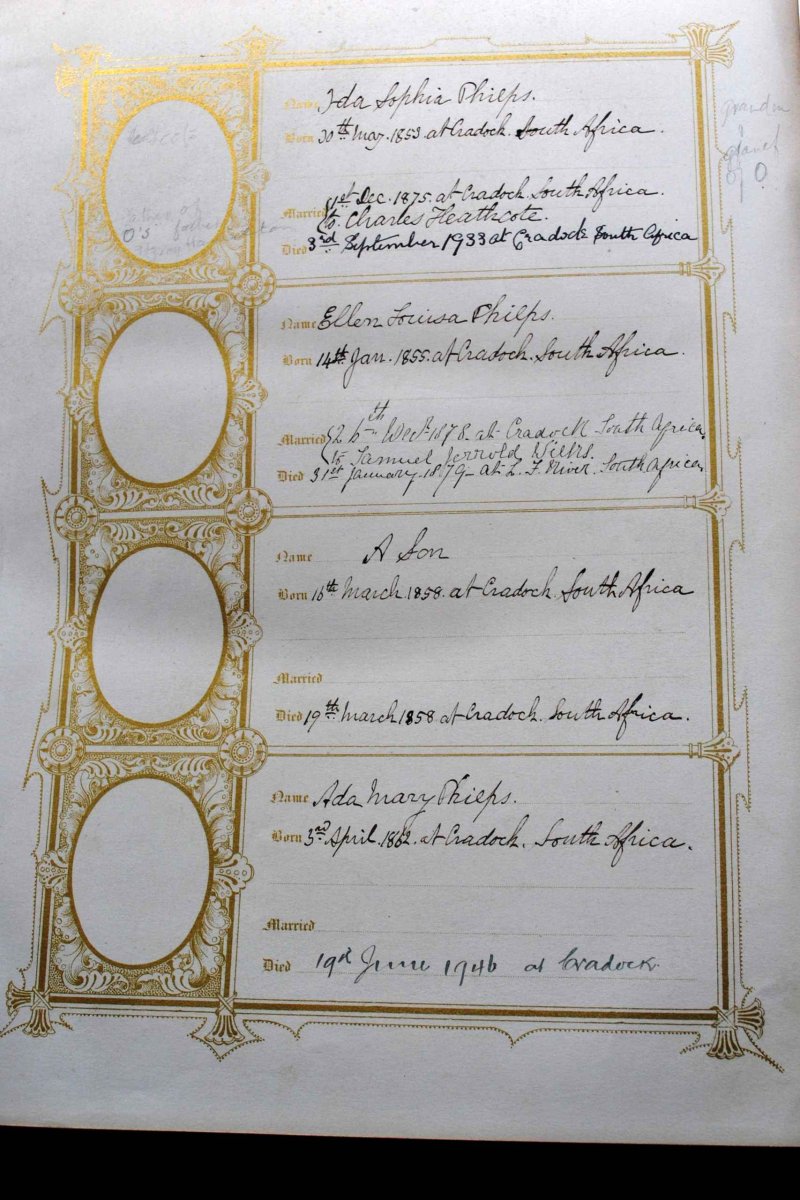 Name Ida Sophia Philps.
Born 30th May. 1853. at Cradock. South Africa.
Married 1st Dec. 1875. at Cradock. South Africa.
to. Charles Heathcote.
Died 3rd September 1933 at Cradock South Africa
Name Ellen Louisa Philps.
Born 14th Jan. 1855. at Cradock. South Africa.
Married 26th Decr. 1878. at Cradock South Africa.
to Samuel Jerrold Wilks.
Died 31st January 1879 at South Africa.
Name A Son
Born 16th March 1858. at Cradock. South Africa
Married
Died 19th March 1858 at Cradock. South Africa.
Name Ada Mary Philps.
Born 3rd April. 1862. at Cradock. South Africa.
Married
Died 19th June 1946 at Cradock.
O's father
of O